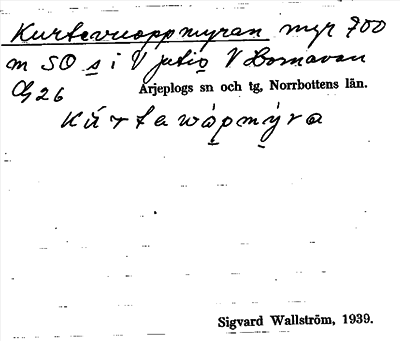 Kurtevuoppmyran myr 700
m SO s i V jutis V Hornavan
G 26
Arjeplogs sn och tg, Norrbottens län.
kúrtawåpmýra
Sigvard Wallström, 1939.